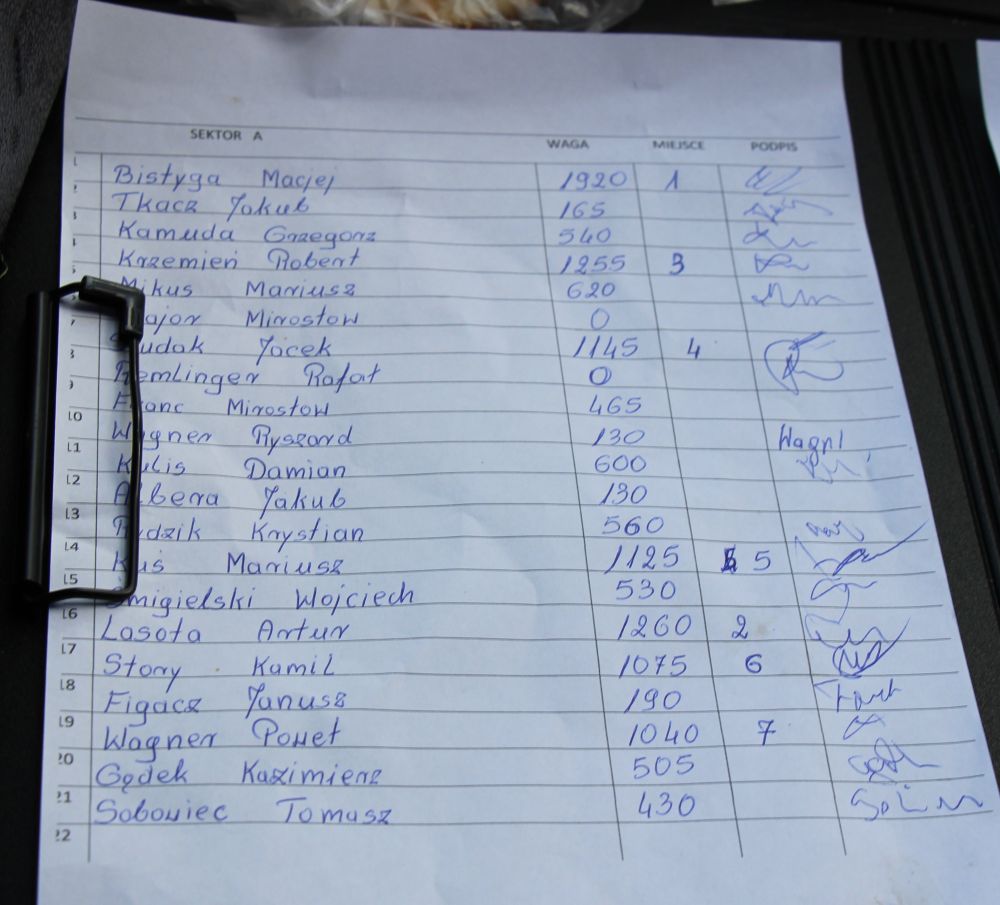 SEKTOR A WAGA MIEJSCE PODPIS
Bistyga Maciej 1920 1
Tkacz Jakub 165
Kamuda Grzegorz 540
Krzemień Robert 1255 3
Mikus Mariusz 620
Major Mirosław 0
Jacek 1145 4
Remlinger Rafał 0
Franc Mirosław 465
10 Wagner Ryszard 130 Wagn
11 Kulis Damian 600
12 Albera Jakub 130
13 Rydzik Krystian 560
14 Kuś Mariusz 1125 5
15 Śmigielski Wojciech 530
16 Lasota Artur 1260 2
17 Story Kamil 1075 6
18 Figacz Janusz 190
19 Wagner Paweł 1040 7
20 Gędek Kazimierz 505
21 Sobowiec Tomasz 430
22